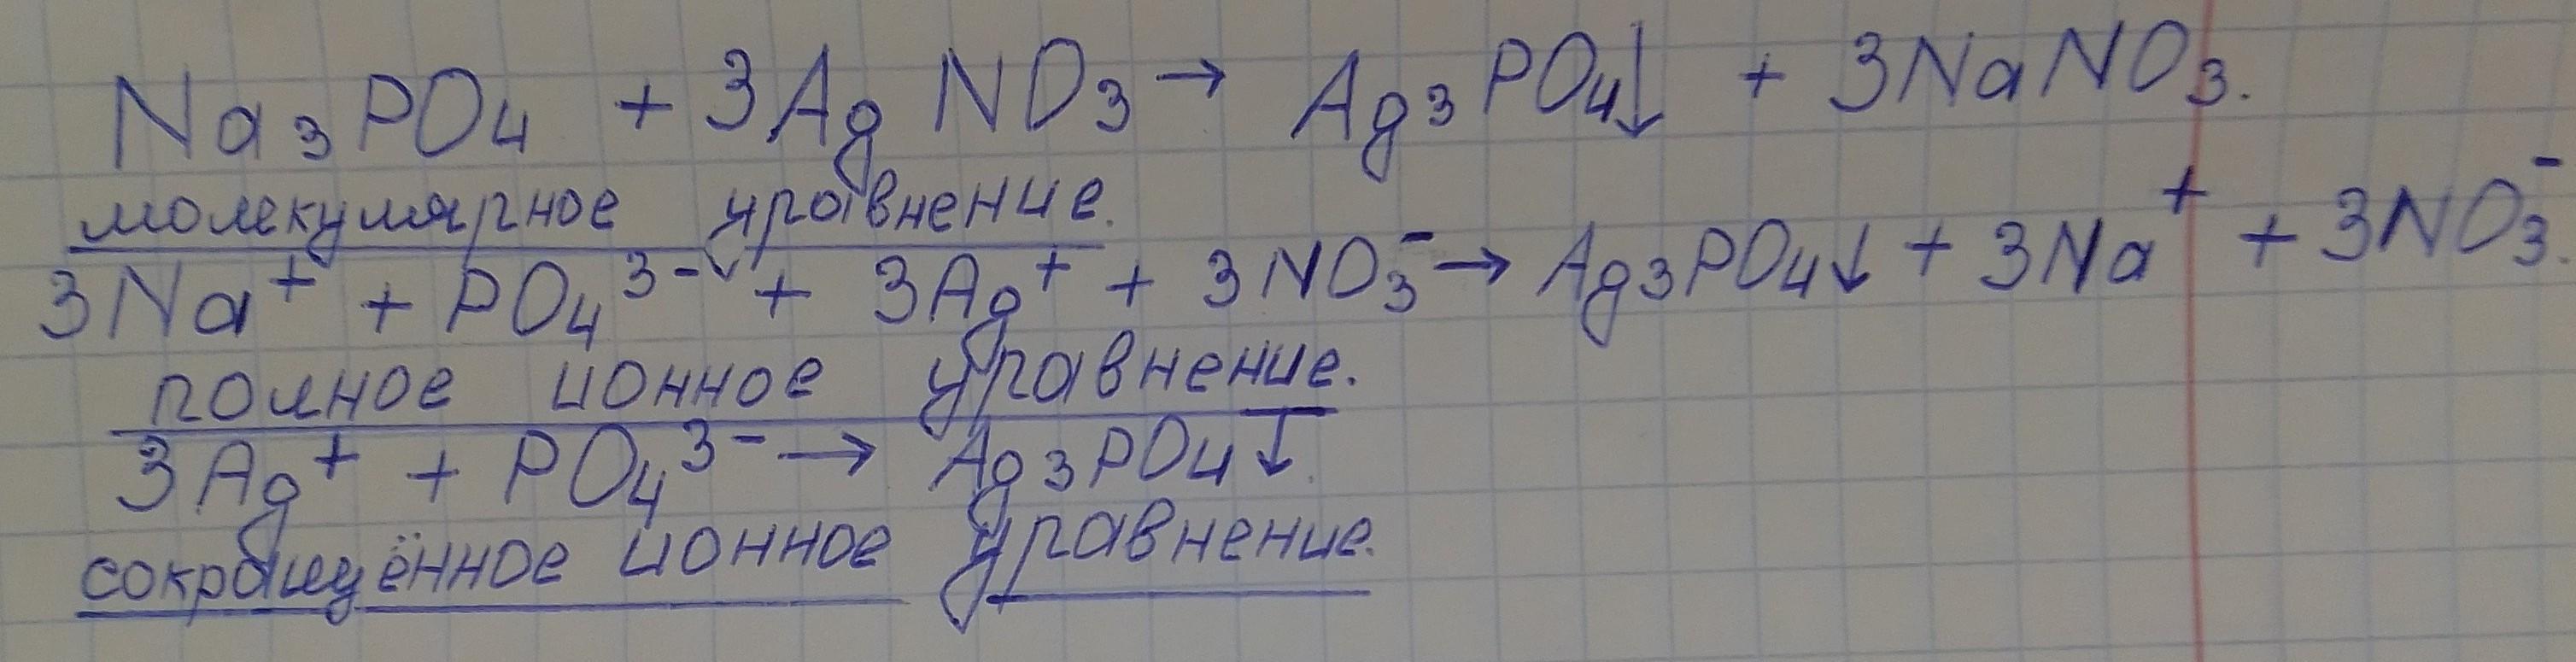 Na₃PO₄ + 3AgNO₃ → Ag₃PO₄↓ + 3NaNO₃.
молекулярное уравнение.
3Na⁺ + PO₄³⁻ + 3Ag⁺ + 3NO₃⁻ → Ag₃PO₄↓ + 3Na⁺ + 3NO₃⁻.
полное ионное уравнение.
3Ag⁺ + PO₄³⁻ → Ag₃PO₄↓.
сокращённое ионное уравнение.